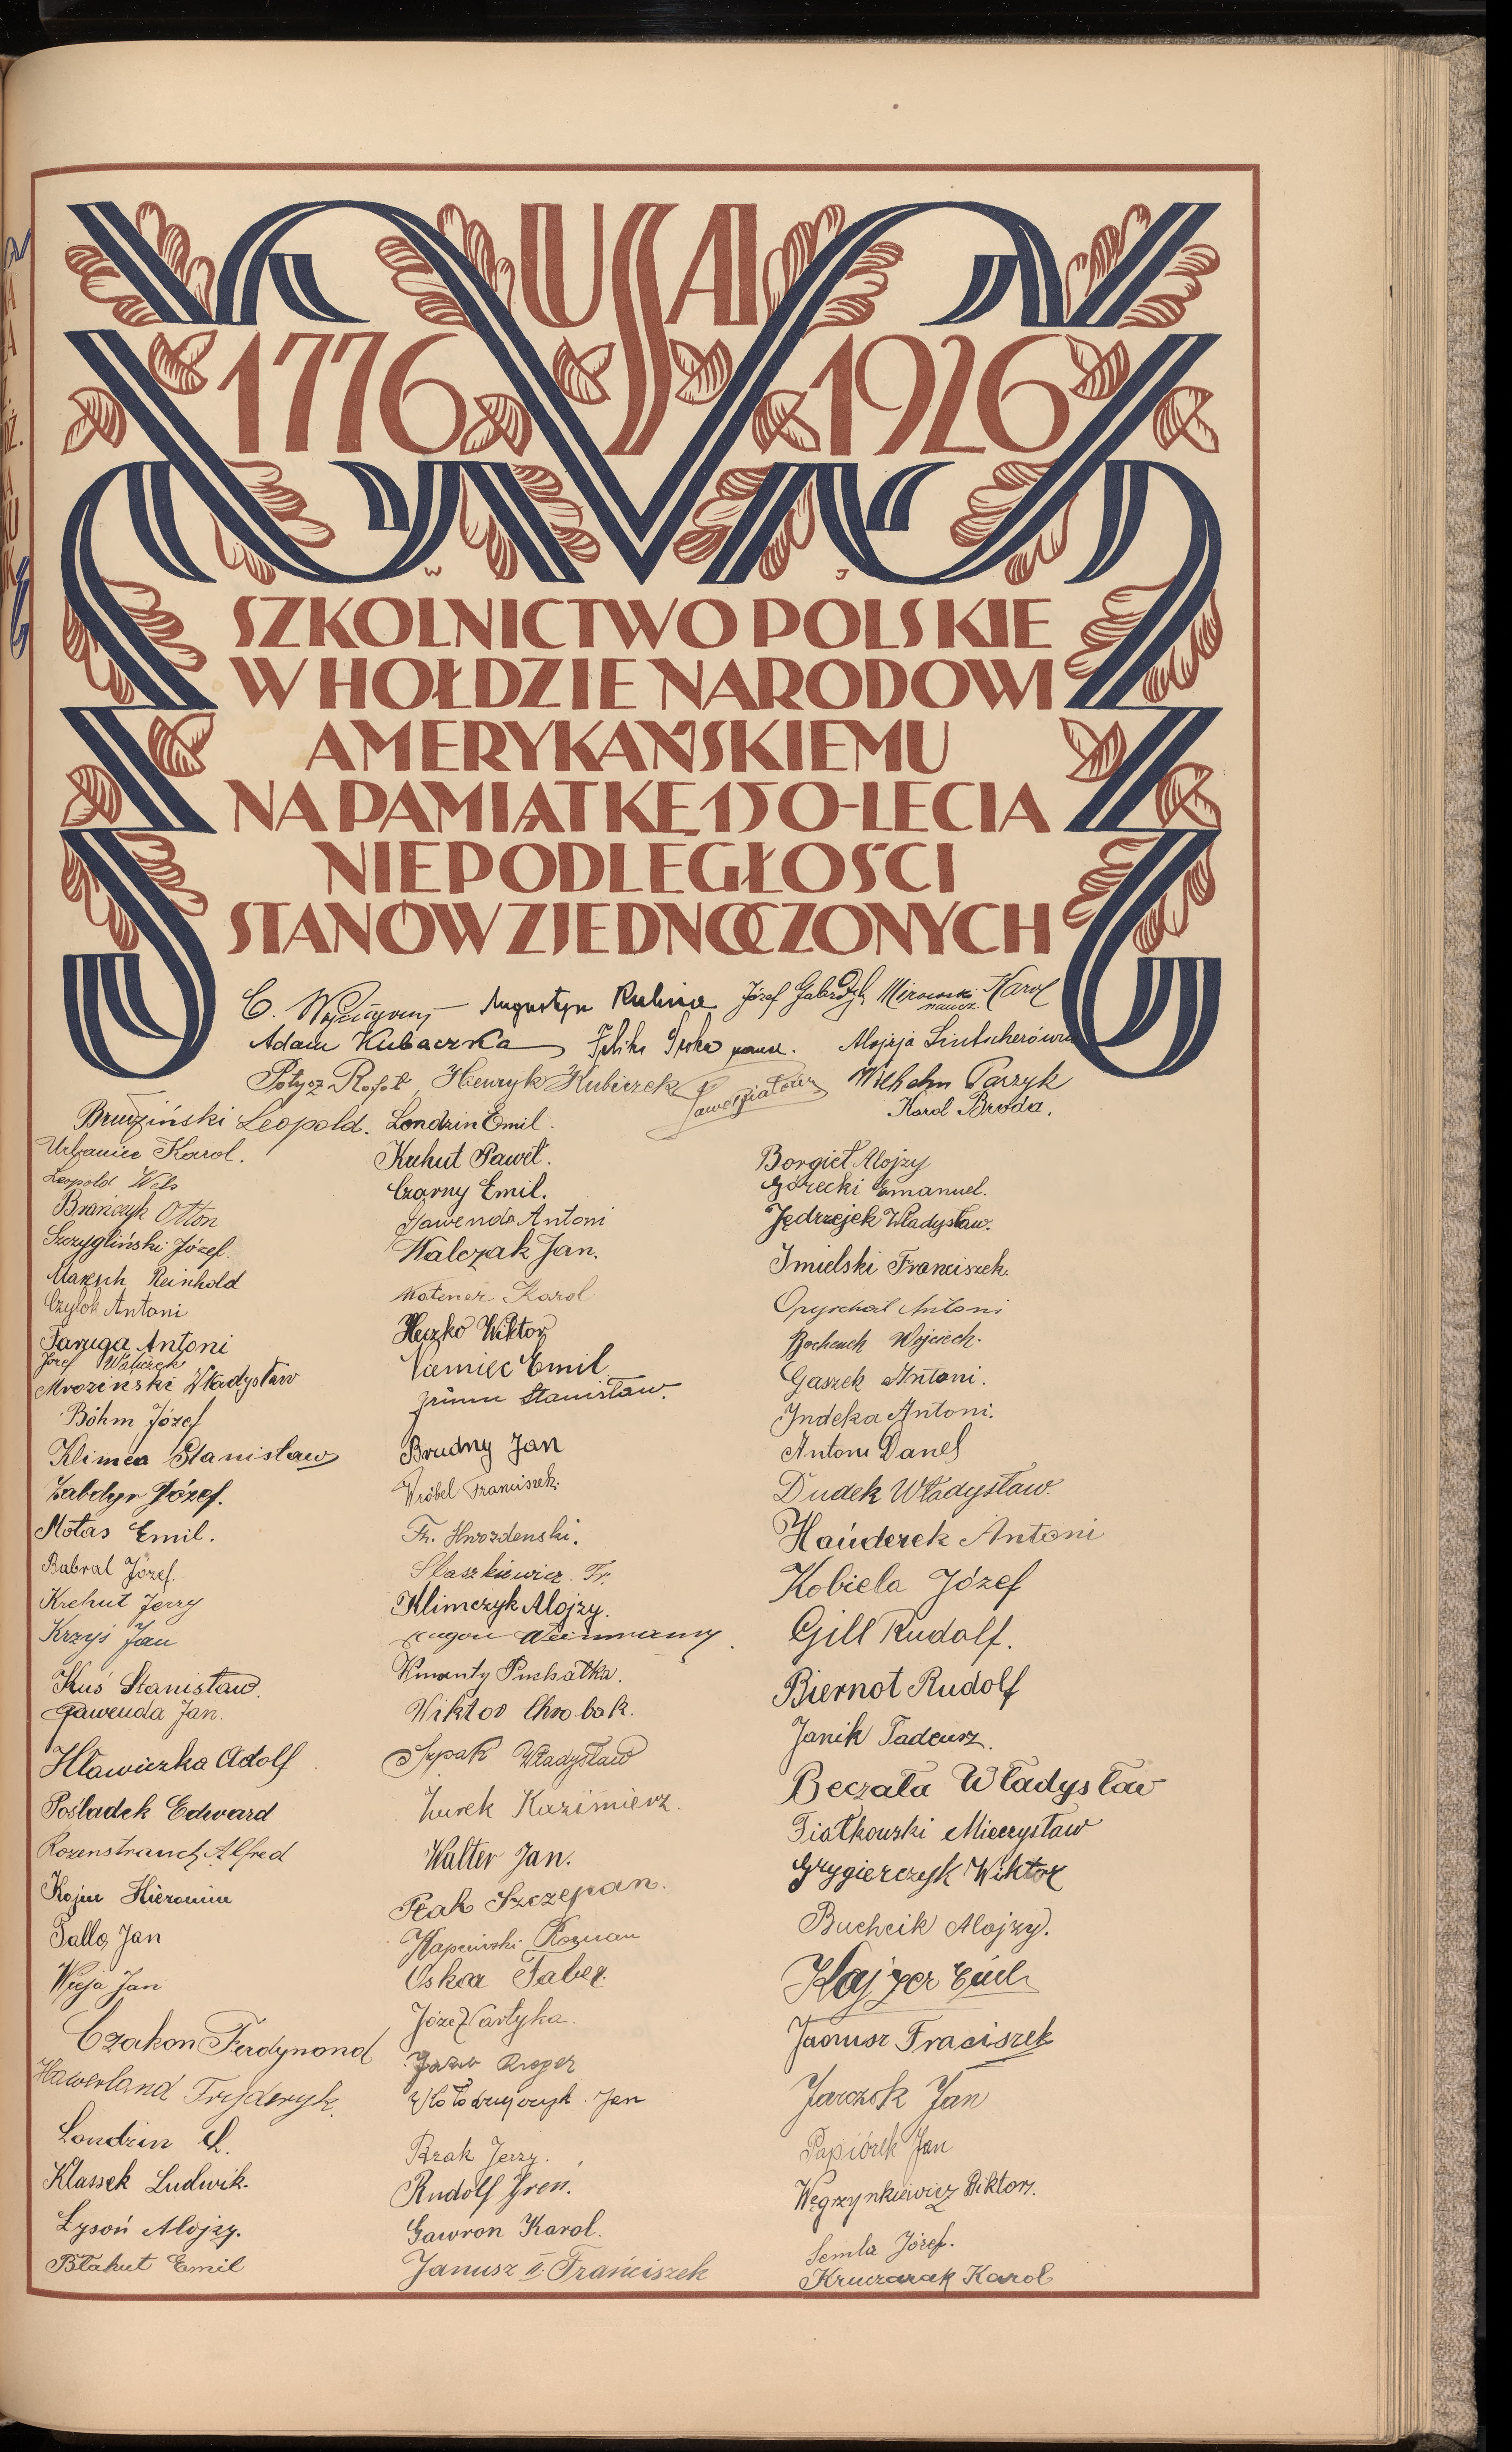 USA
1776 1926
W J
SZKOLNICTWO POLSKIE
W HOŁDZIE NARODOWI
AMERYKAŃSKIEMU
NA PAMIĄTKĘ 150-LECIA
NIEPODLEGŁOŚCI
STANÓW ZJEDNOCZONYCH
C. Augustyn Józef Karol
naucz.
Adam Kubaczka Feliks naucz. Alojzja Lintscherówna
Henryk Kubiczek Wilhelm Parzyk
Karol Broda.
Brudziński Leopold. Londzin Emil.
Urbaniec Karol.
Leopold Wels
Brańczyk Otton
Szczygliński Józef.
Reinhold
Czylok Antoni
Faruga Antoni
Józef
Mroziński Władysław
Böhm Józef
Klimca Stanisław
Zabdyr Józef.
Motas Emil.
Babral Józef.
Krehut Jerzy
Krzyś Jan
Kuś Stanisław.
Gawenda Jan.
Hławiczka Adolf
Pośladek Edward
Rozenstrauch Alfred
Kojm Hieronim
Palla Jan
Wieja Jan
Czakon Ferdynand
Hawerland Fryderyk.
Londzin L.
Klassek Ludwik.
Łysoń Alojzy.
Błahut Emil
Kuhut Paweł.
Czarny Emil.
Gawenda Antoni
Walczak Jan.
Karol
Heczko Wiktor
Niemiec Emil
Stanisław.
Brudny Jan
Wróbel Franciszek.
Fr. Hwozdenski.
Staszkiewicz Fr.
Klimczyk Alojzy.
Puchałka.
Wiktor Chrobok.
Szpak Władysław
Żurek Kazimierz.
Walter Jan.
Ptak Szczepan.
Roman
Oskar Faber.
Kroger
Kołodziejczyk Jan
Brzak Jerzy.
Rudolf Gren.
Gawron Karol.
Janusz II. Franciszek
Borgieł Alojzy
Górecki Emanuel.
Jędrzejek Władysław.
Imielski Franciszek.
Opyrchał Antoni
Bochenek Wojciech.
Gaszek Antoni.
Indeka Antoni.
Antoni Danel
Dudek Władysław.
Hańderek Antoni
Kobiela Józef
Gill Rudolf.
Biernot Rudolf
Janik Tadeusz.
Beczała Władysław
Fiałkowski Mieczysław
Grygierczyk Wiktor
Buchcik Alojzy.
Kajzer Emil
Janusz Fraciszek
Jarczok Jan
Papiórek Jan
Węgrzynkiewicz Wiktor.
Semla Józef.
Kruczarak Karol